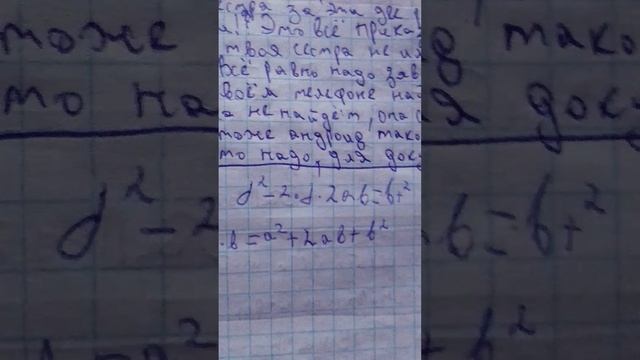 я! Это всё прика
твоя сестра не
всё равно надо зав
воём телефоне на
а не найдёт, она
тоже андроид тако
то надо, для док
d²-2·d·2ab=b+²
·b=a²+2ab+b²